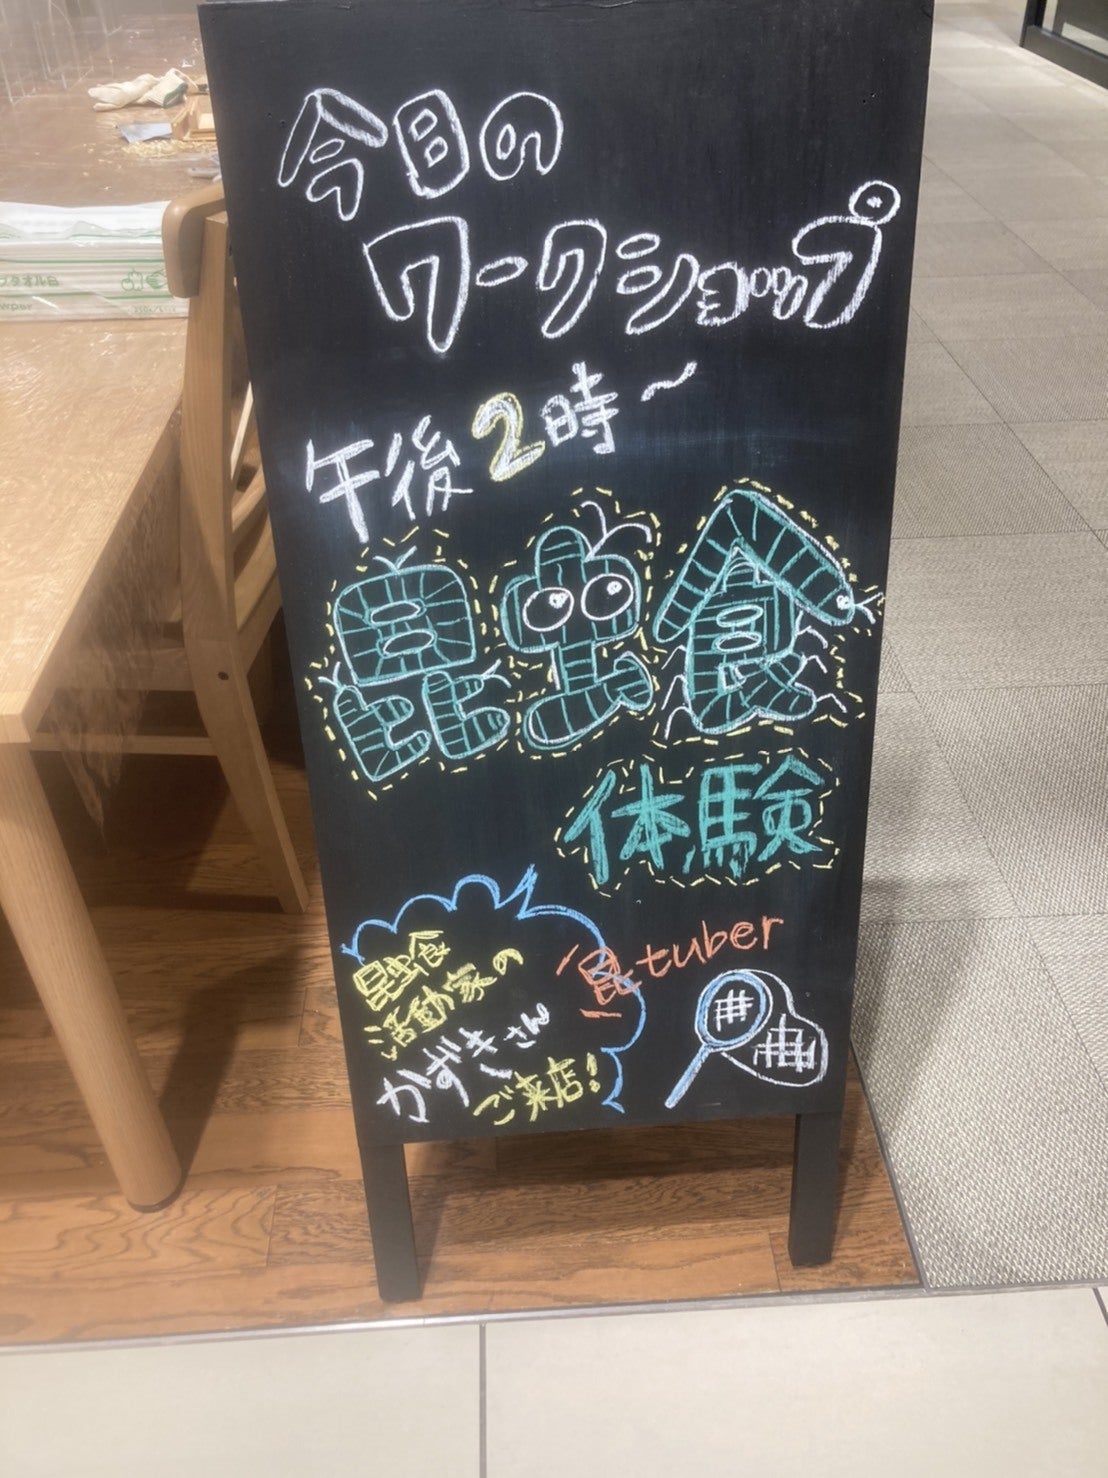 今日の
ワークショップ
午後2時~
昆虫食
体験
昆虫食
活動家の
かずきさん
ご来店!
昆tuber
タオル